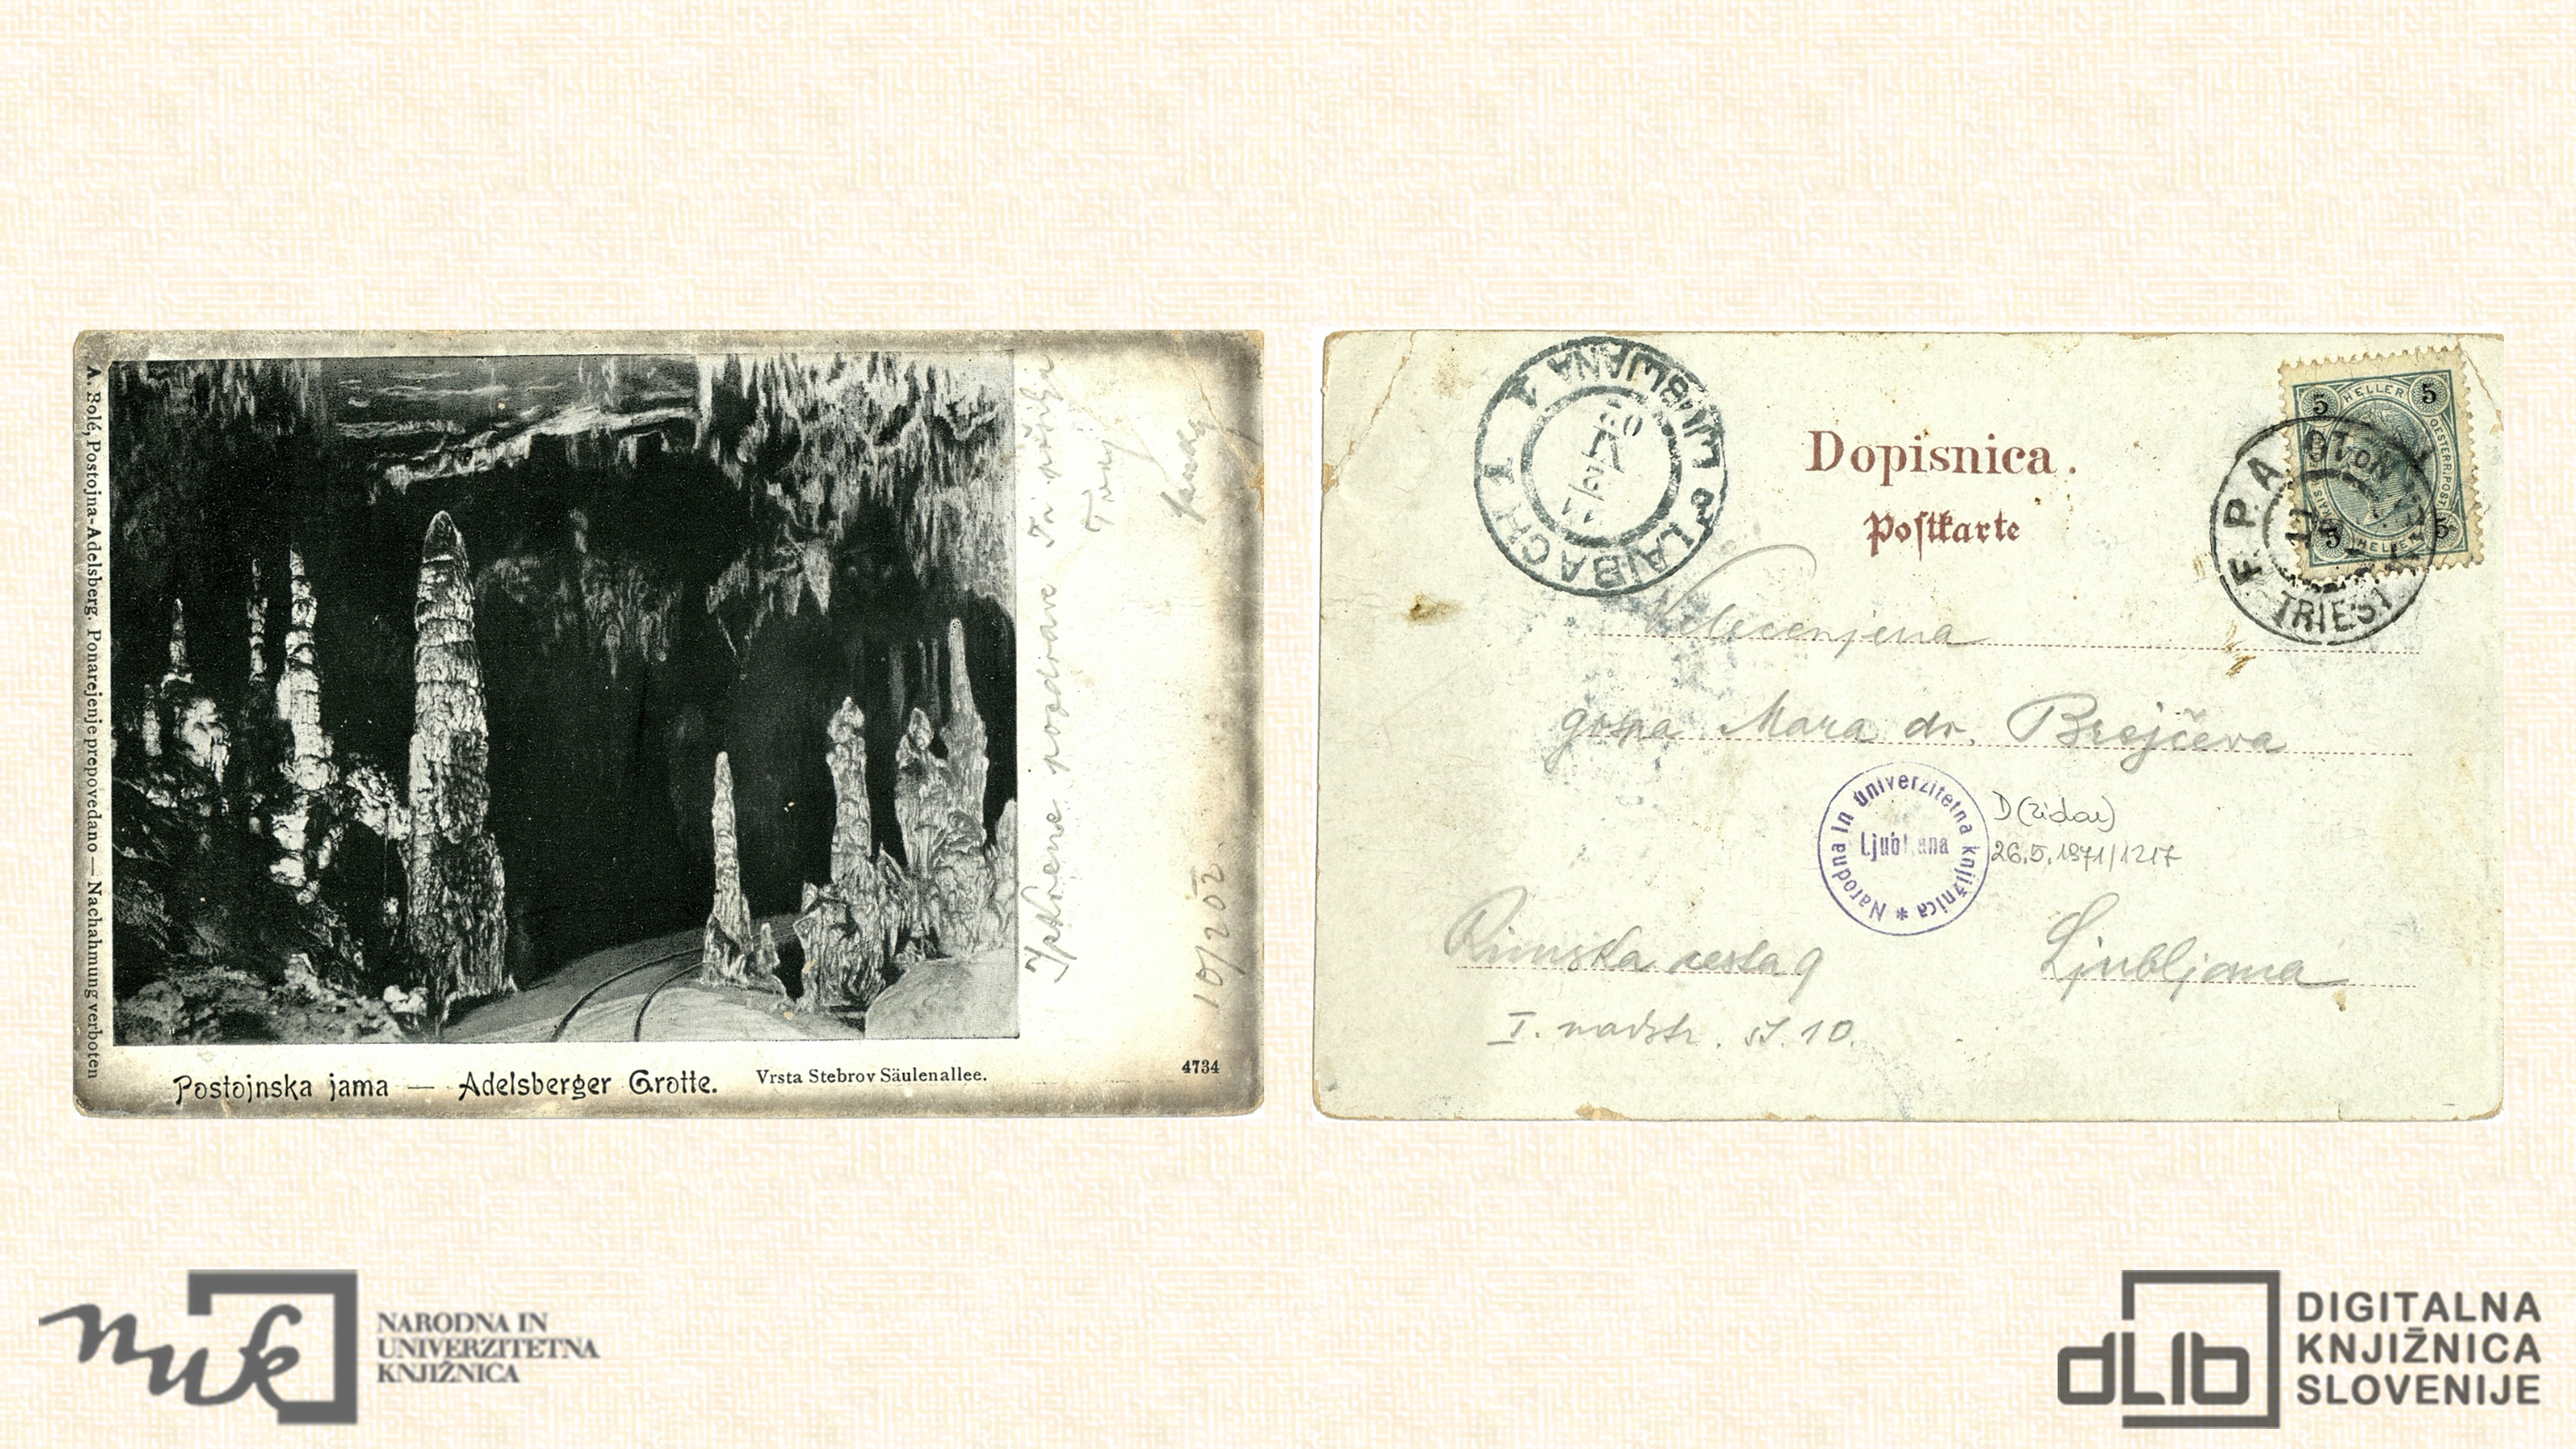 A. Bolé, Postojna-Adelsberg. Ponarejenje prepovedano — Nachahmung verboten
Iskrene pozdrave
10/2 02
Postojnska jama — Adelsberger Grotte. Vrsta Stebrov Säulenallee.
4734
LAIBACH 1 LJUBLJANA 1
Dopisnica.
Postkarte
5 HELLER 5
5 HELLER 5
F. P. A.
TRIEST
Velecenjena
gospa Mara dr. Brejčeva
Narodna in univerzitetna knjižnica *
Ljubljana
D (Židar)
26.5.1971/1217
Rimska cesta 9
Ljubljana
I. nadstr. št. 10.
nuk
NARODNA IN
UNIVERZITETNA
KNJIŽNICA
dLIb
DIGITALNA
KNJIŽNICA
SLOVENIJE